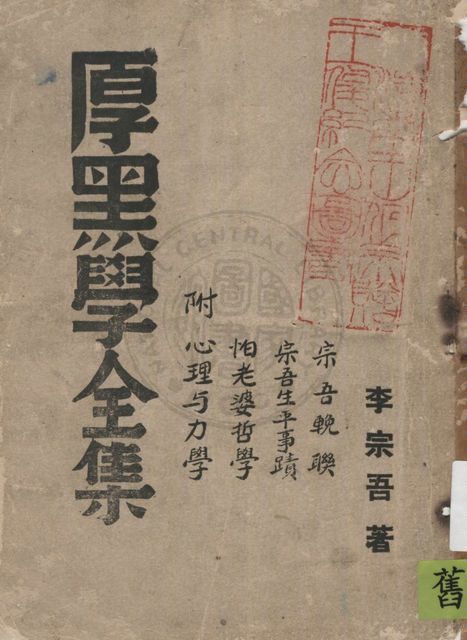 李宗吾著
宗吾輓聯
宗吾生平事蹟
怕老婆哲學
附 心理与力學
厚黑學全集
舊
CENTRAL